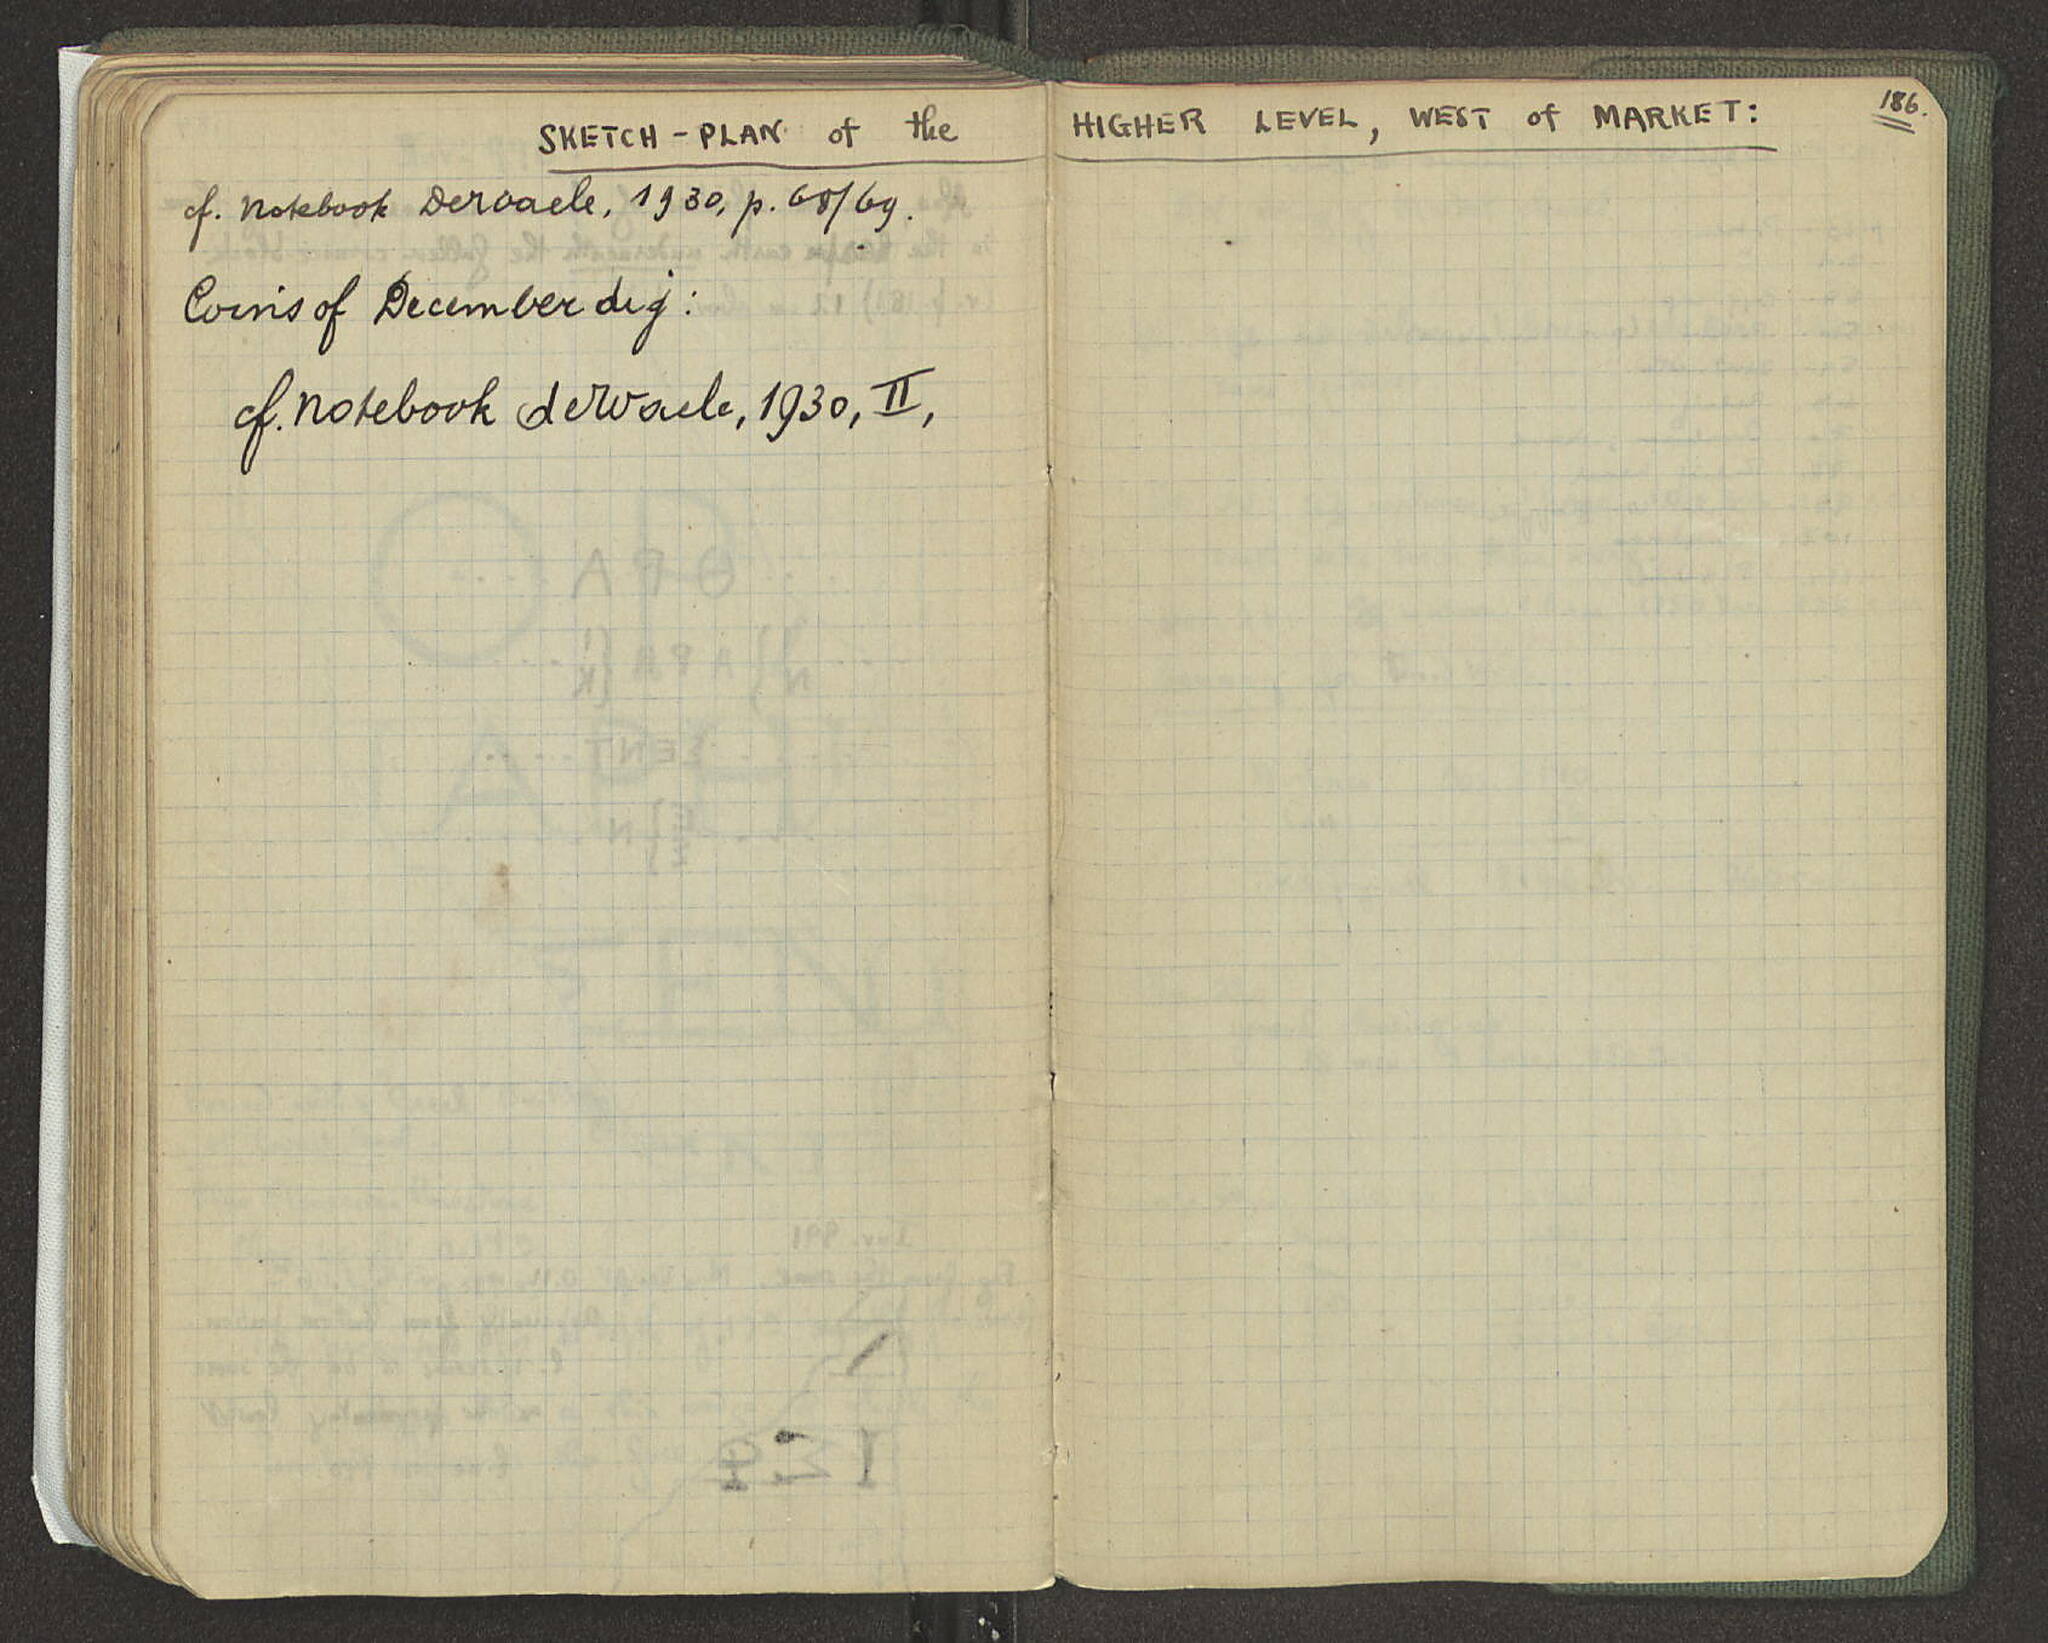 SKETCH-PLAN of the HIGHER LEVEL, WEST of MARKET:
186.
cf. Notebook DeWaele, 1930, p. 68/69.
Coins of December dig:
cf. Notebook deWaele, 1930, II,